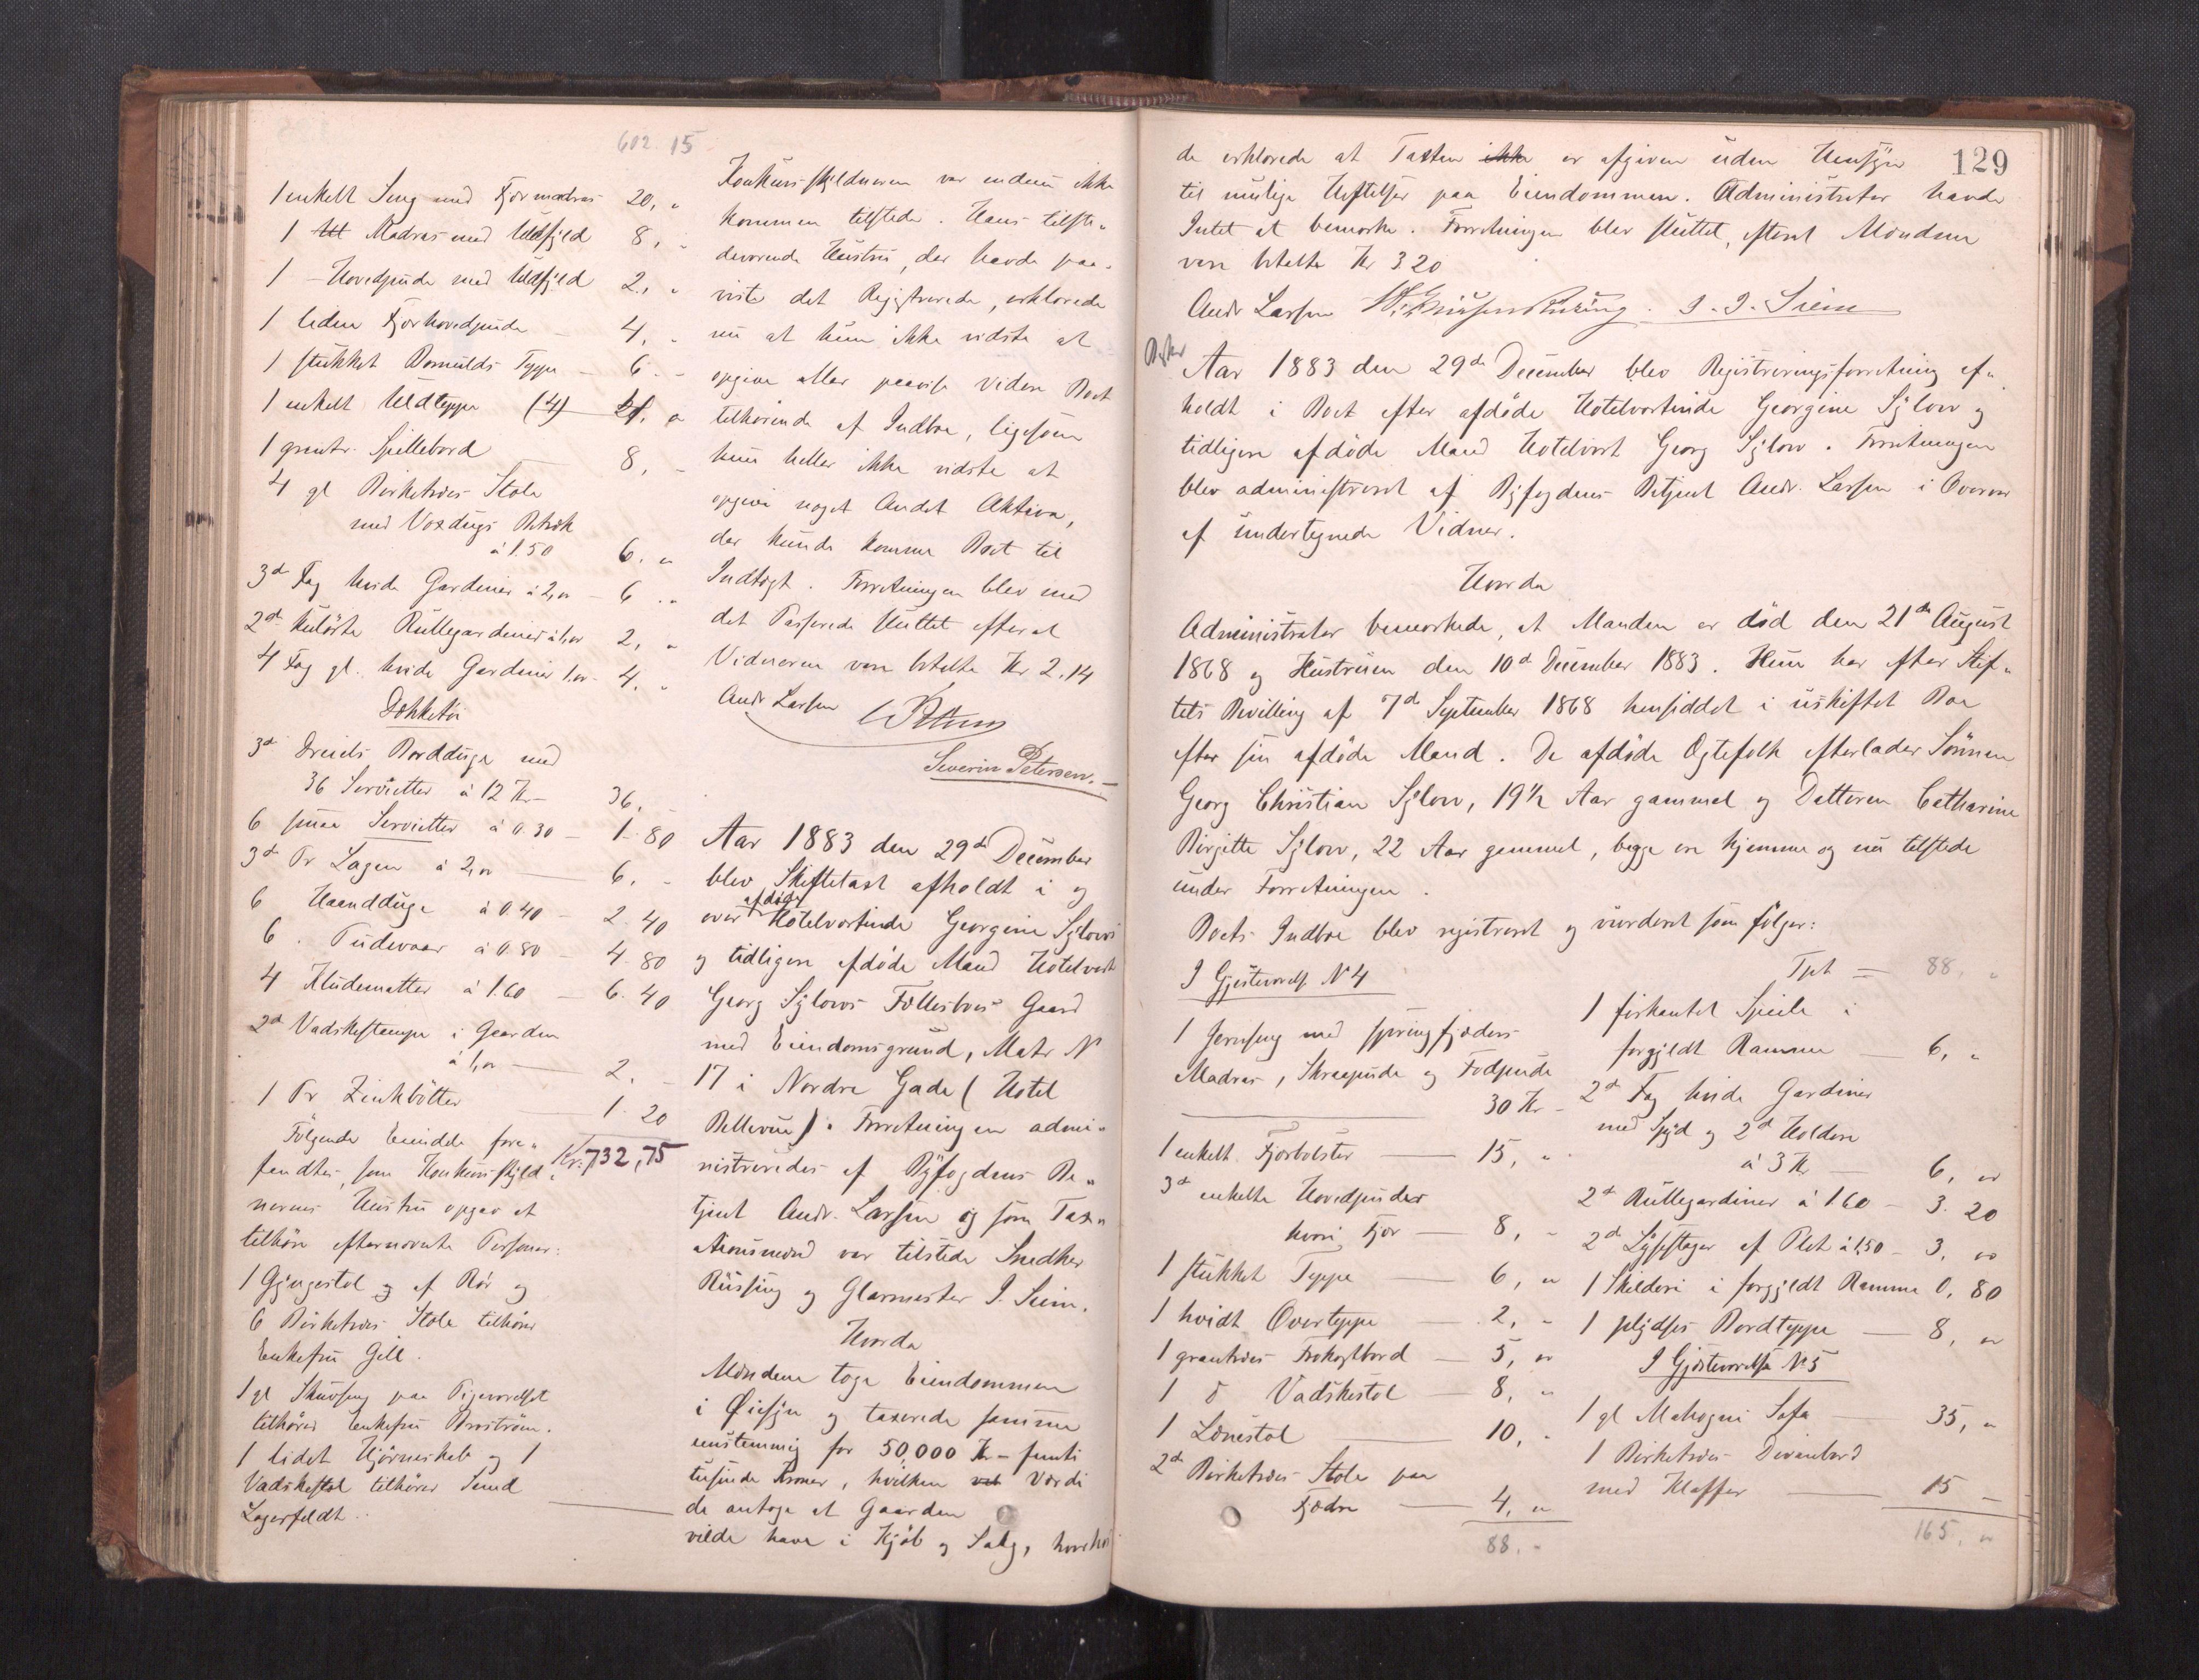 602. 15
1 enkelt Seng med Fjærmadras 20, "
1 Madras med Uldfyld 8, "
1 - Hovedpude med Uldfyld 2, "
1 liden Fjærhovedpude - 4, "
1 stukket Bomulds Teppe - 6 - "
1 enkelt Uldteppe (4)
1 grantr. Spillebord 8, "
4 gl Birketræes Stole
med Voxdugs Betræk
à 1.50 6. "
3de Fag hvide Gardiner à 2,00 - 6 . "
2de kulørte Rullegardiner à 1,00 2, "
4 Fag gl. hvide Gardiner 1,00 - 4. "
Dækketøi
3de Dreiels Bordduge med
36 Servietter à 12 Kr - 36. -
6 smaa Servietter à 0.30 - 1 - 80
3de Pr Lagen à 2,00 - 6. -
6 Haandduge à 0.40 - 2. 40
6 . Pudevaar à 0.80 - 4. 80
4 Kludematter à 1.60 - 6. 40
2de Vadskestamper i Gaarden
à 1,00 - 2. -
1 Pr Zinkbøtter - 1. 20
Kr: 732,75
Følgende fore-
fandtes, som Konkursskyld-
nerens Hustru opgav at
tilhøre efternævnte Personer:
1 Gyngestol af Rør og
6 Birketræes Stole tilhører
Enkefru Gill.
1 gl Skuvseng paa Pigeværelset
tilhører Enkefru Broström.
1 lidet Hjørneskab og 1
Vadskestol tilhører Smed
Lagerfeldt.
Konkursskyldneren var endnu ikke
kommen tilstede. Hans tilste-
deværende Hustru, der havde paa-
vist det Registrerede, erklærede
nu at hun ikke vidste at
opgive eller paavise videre Boet
tilhørende af Indboe, ligesom
hun heller ikke vidste at
opgive noget Andet Aktiva,
der kunde komme Boet til
Indtægt. Forretningen blev med
det Passerede sluttet efterat
Vidnerne vare betalte Kr 2.14
Andr Larsen
Severin Petersen.-
Aar 1883 den 29de December
blev Skiftetaxt afholdt i og
over afdøde Hotelværtinde Georgine Sylows
og tidligere afdøde Mand Hotelvært
Georg Sylows Fællesboes Gaard
med Eiendomsgrund, Matr N
17 i Nordre Gade (Hotel
Bellevue). Forretningen admi-
nistreredes af Byfogdens Be-
tjent Andr. Larsen og som Tax-
ationsmænd var tilstede Snedker
Büssing og Glarmester J. Siem.
Hvorda
Mændene toge Eiendommen
i Øiesyn og taxerede samme
enstemmig for 50,000 Kr - femti
tusinde Kroner, hvilken Værdi
de antoge at Gaarden
vilde have i Kjøb og Salg, hvorhos
129
de erklærede at Taxten ikke er afgiven uden Hensyn
til mulige Heftelser paa Eiendommen. Administrator havde
Intet at bemærke. Forretningen blev sluttet, efterat Mændene
vare betalte Kr 3 20
Andr Larsen J. J. Siem
Aar 1883 den 29de December blev Registreringsforretning af-
holdt i Boet efter afdøde Hotelværtinde Georgine Sylow og
tidligere afdøde Mand Hotelvært Georg Sylow. Forretningen
blev administreret af Byfogdens Betjent Andr. Larsen i Overvær
af undertegnede Vidner.
Hvorda
Administrator bemærkede, at Manden er død den 21de August
1868 og Hustruen den 10de December 1883. Hun har efter Stif-
tets Bevilling af 7de September 1868 hensiddet i uskiftet Boe
efter sin afdøde Mand. De afdøde Ægtefolk efterlader Sønnen
Georg Christian Sylow, 19½ Aar gammel og Datteren Catharine
Birgitte Sylow, 22 Aar gammel, begge ere hjemme og nu tilstede
under Forretningen.
Boets Indboe blev registreret og vurderet som følger:
I Gjæsteværelse N 4
1 Jernseng med Springfjeders
Madras, Skraapude og Fodpude
30 Kr -
1 enkelt Fjærbolster - 15, "
3de enkelte Hovedpuder
hvori Fjær - 8, "
1 stukket Teppe - 6, "
1 hvidt Overteppe - 2, "
1 grantræes Frokostbord - 5, "
1 d Vadskestol - 8, "
1 Lænestol - 10, "
2de Birketræes Stole paa
Fjædre - 4, "
88. "
Tpt - 88, "
1 firkantet Speile i
forgyldt Ramme - 6, "
2de Fag hvide Gardiner
med Spyd og 2de Holdere
à 3 Kr - 6, "
2de Rullegardiner à 1.60 - 3. 20
2de Lysestager af Plet à 1,50 - 3, "
1 Skilderi i forgyldt Ramme 0, 80
1 plydses Bordteppe - 8, "
I Gjæsteværelse N 5
1 gl Mahogni Sofa - 35, "
1 Birketræes Divanbord
med Klaffer - 15 -
165, "